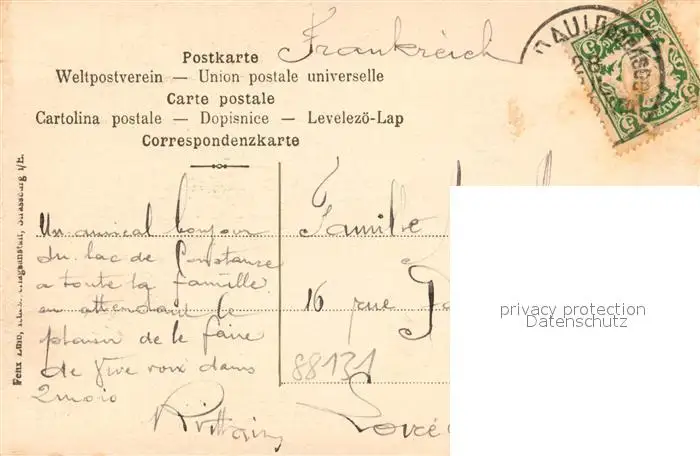 Frankreich
Postkarte
Weltpostverein — Union postale universelle
Carte postale
Cartolina postale — Dopisnice — Levelezö-Lap
Correspondenzkarte
Un amical bonjour
du lac de Constance
a toute la famille
en attendant le
plaisir de le faire
de vive voix dans
2 mois
Famille
16 rue
88131
5
5
BAYERN
privacy protection
Datenschutz